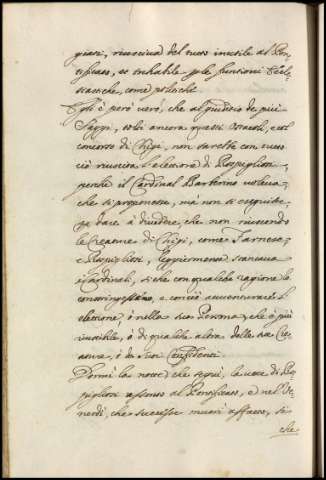 giarsi, riusciva del tutto inutile al Pon-
tificato, et inhabile p le funtioni Eccle-
siastiche, come politiche
Egli è però vero, che al giudicio de più
Saggi, tolti ancora questi ostacoli, e col
concorso di Chigi, non sarebbe con tutto
ciò riuscita l'elettione di Rospigliosi,
perche il Cardinal Barberino voleva,
che si proponesse, mà non si eseguisse
p dare à divedere, che non riuscendo
le Creature di Chigi, come Farnese,
e Rospigliosi, leggiermente stancava
i Cardinali, si che con qualche ragione li
constringessero, e così avventurare l'
elettione, ò nella sua Persona, che è più
inutile, ò di qualche altra delle sue Cre-
ature, ò de suoi Confidenti.
Dormì la notte, che seguì, la voce di Ros-
pigliosi assonto al Pontificato, e nel Ve-
nerdì, che successe morì affatto, si
che